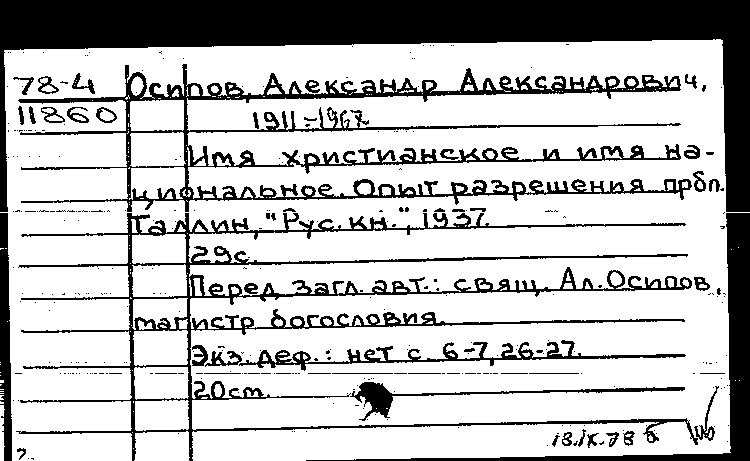 78-4 Осипов, Александр Александрович,
11860 1911-1967
Имя христианское и имя на-
циональное. Опыт разрешения прбл.
Таллин, "Рус. кн.", 1937.
29с.
Перед загл. авт.: свящ. Ал. Осипов,
магистр богословия.
Экз. деф.: нет с. 6-7, 26-27.
20cm.
18.IX.78 б